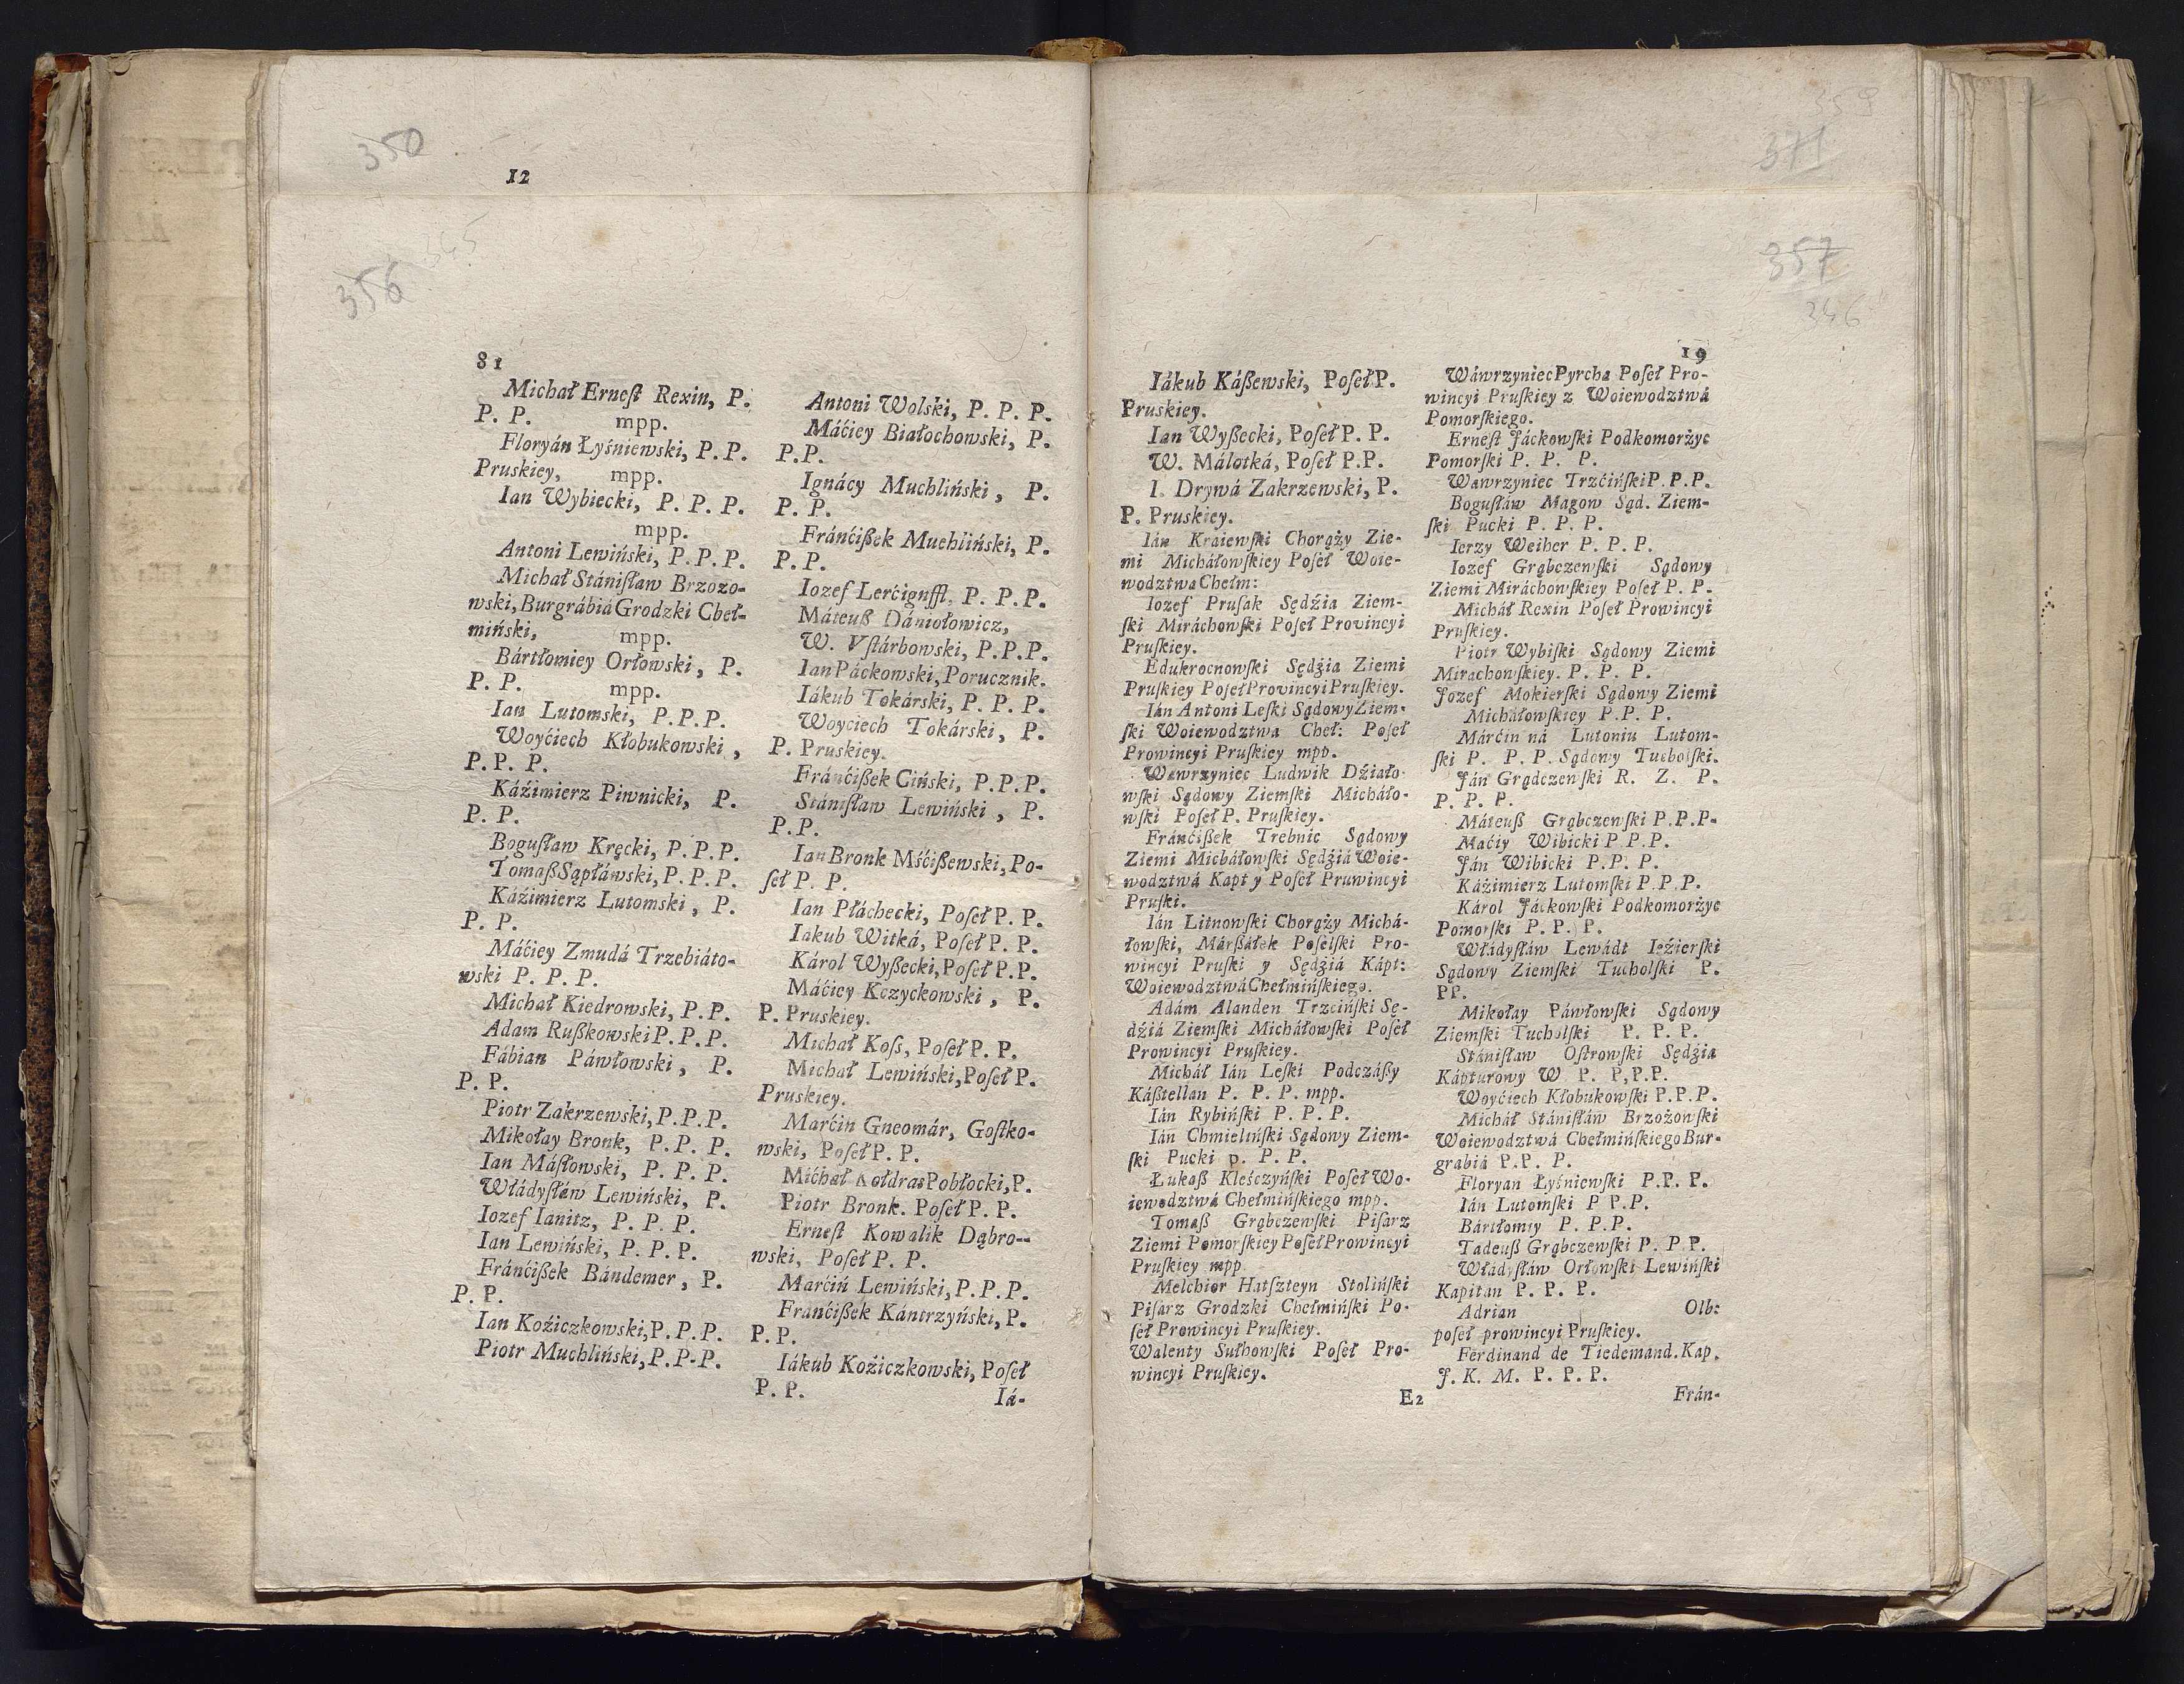 350
12
356
345
81
Michał Erneſt Rexin, P.
P. P. mpp.
Floryán Łyśniewski, P. P.
Pruskiey, mpp.
Ian Wybiecki, P. P. P.
mpp.
Antoni Lewiński, P. P. P.
Michał Stániſław Brzozo-
wski, Burgrábiá Grodzki Cheł-
miński, mpp.
Bártłomiey Orłowski, P.
P. P. mpp.
Ian Lutomski, P. P. P.
Woyćiech Kłobukowski,
P. P. P.
Káźimierz Piwnicki, P.
P. P.
Boguſław Kręcki, P. P. P.
Tomaß Sąpłáwski, P. P. P.
Káźimierz Lutomski, P.
P. P.
Máćiey Zmudá Trzebiáto-
wski P. P. P.
Michał Kiedrowski, P. P.
Adam Rußkowski P. P. P.
Fábian Páwłowski, P.
P. P.
Piotr Zakrzewski, P. P. P.
Mikołay Bronk, P. P. P.
Ian Máſłowski, P. P. P.
Włádyſław Lewiński, P.
Iozef Ianitz, P. P. P.
Ian Lewiński, P. P. P.
Fránćißek Bándemer, P.
P. P.
Ian Koźiczkowski, P. P. P.
Piotr Muchliński, P. P. P.
Antoni Wolski, P. P. P.
Máćiey Białochowski, P.
P. P.
Ignácy Muchliński, P.
P. P.
Fránćißek Muehliński, P.
P. P.
Iozef P. P. P.
Máteuß Dániołowicz,
W. Vſtárbowski, P. P. P.
Ian Páckowski, Porucznik.
Iákub Tokárski, P. P. P.
Woyciech Tokárski, P.
P. Pruskiey.
Fránćißek Ciński, P. P. P.
Stániſław Lewiński, P.
P. P.
Ian Bronk Mśćißewski, Po-
ſeł P. P.
Ian Płáchecki, Poſeł P. P.
Iakub Witká, Poſeł P. P.
Károl Wyßecki, Poſeł P. P.
Máćiey Kczyckowski, P.
P. Pruskiey.
Michał Koſs, Poſeł P. P.
Michał Lewiński, Poſeł P.
Pruskiey.
Marćin Gneomár, Goſtko-
wski, Poſeł P. P.
Mićhał Kołdras Pobłocki, P.
Piotr Bronk. Poſeł P. P.
Erneſt Kowalik Dąbro-
wski, Poſeł P. P.
Marćiń Lewiński, P. P. P.
Franćißek Kántrzyński, P.
P. P.
Iákub Koźiczkowski, Poſeł
P. P.
Iá-
359
371
357
346
19
Iákub Káßewski, Poſeł P.
Pruskiey.
Ian Wyßecki, Poſeł P. P.
W. Málotká, Poſeł P. P.
I. Drywá Zakrzewski, P.
P. Pruskiey.
Ián Kraiewſki Chorąży Zie-
mi Micháłowſkiey Poſeł Woie-
wodztwa Chełm:
Iozef Pruſak Sędźia Ziem-
ſki Miráchowſki Poſeł Provincyi
Pruſkiey.
Edukrocnowſki Sędźia Ziemi
Pruſkiey Poſeł Provincyi Pruſkiey.
Ián Antoni Leſki Sądowy Ziem-
ſki Woiewodztwa Cheł: Poſeł
Prowincyi Pruſkiey mpp.
Wawrzyniec Ludwik Dźiało-
wſki Sądowy Ziemſki Micháło-
wſki Poſeł P. Pruſkiey.
Fránćißek Trebnic Sądowy
Ziemi Micháłowſki Sędźiá Woie-
wodztwá Kapt y Poſeł Pruwincyi
Pruſki.
Ián Litnowſki Chorąży Michá-
łowſki, Márßałek Poſelſki Pro-
wincyi Pruſki y Sędźiá Kápt:
Woiewodztwá Chełmińſkiego.
Adám Alanden Trzcińſki Sę-
dźiá Ziemſki Micháłowſki Poſeł
Prowincyi Pruſkiey.
Michał Ián Leſki Podczáßy
Káßtellan P. P. P. mpp.
Ián Rybińſki P. P. P.
Ián Chmielińſki Sądowy Ziem-
ſki Pucki p. P. P.
Łukaß Kleśczyńſki Poſeł Wo-
iewodztwá Chełmińſkiego mpp.
Tomaß Grąbczewſki Piſarz
Ziemi Pomorſkiey Poſeł Prowincyi
Pruſkiey mpp
Melchior Hatſzteyn Stolińſki
Piſarz Grodzki Chełmińſki Po-
ſeł Prowincyi Pruſkiey.
Walenty Sułhowſki Poſeł Pro-
wincyi Pruſkiey.
E2
Wáwrzyniec Pyrcha Poſeł Pro-
wincyi Pruſkiey z Woiewodztwá
Pomorſkiego.
Erneſt Jáckowſki Podkomorżyc
Pomorſki P. P. P.
Wawrzyniec Trzćińſki P. P. P.
Boguſław Magow Sąd. Ziem-
ſki Pucki P. P. P.
Ierzy Weiher P. P. P.
Iozef Grąbczewſki Sądowy
Ziemi Miráchowſkiey Poſeł P. P.
Micháł Rexin Poſeł Prowincyi
Pruſkiey.
Piotr Wybiſki Sądowy Ziemi
Mirachowſkiey. P. P. P.
Jozef Mokierſki Sądowy Ziemi
Micháłowſkiey P. P. P.
Márćin ná Lutoniu Lutom-
ſki P. P. P. Sądowy Tucholſki.
Ján Grądczewſki R. Z. P.
P. P. P.
Máteuß Grąbczewſki P. P. P.
Maćiy Wibicki P. P. P.
Ján Wibicki P. P. P.
Káźimierz Lutomſki P. P. P.
Károl Jáckowſki Podkomorżyc
Pomorſki P. P. P.
Włádyſłáw Lewádt Ieźierſki
Sądowy Ziemſki Tucholſki P.
PP.
Mikołay Páwłowſki Sądowy
Ziemſki Tucholſki P. P. P.
Stániſław Oſtrowſki Sędźia
Kápturowy W P. P, P. P.
Woyćiech Kłobukowſki P. P. P.
Micháł Stániſłáw Brzożowſki
Woiewodztwá Chełmińſkiego Bur-
grabiá P. P. P.
Floryan Łyśniewſki P. P. P.
Ián Lutomſki P P. P.
Bártłomiy P. P. P.
Tadeuß Grąbczewſki P. P. P.
Władyſłáw Orłowſki Lewińſki
Kapitan P. P. P.
Adrian Olb:
poſeł prowincyi Pruſkiey.
Ferdinand de Tiedemand. Kap.
J. K. M. P. P. P.
Frán-